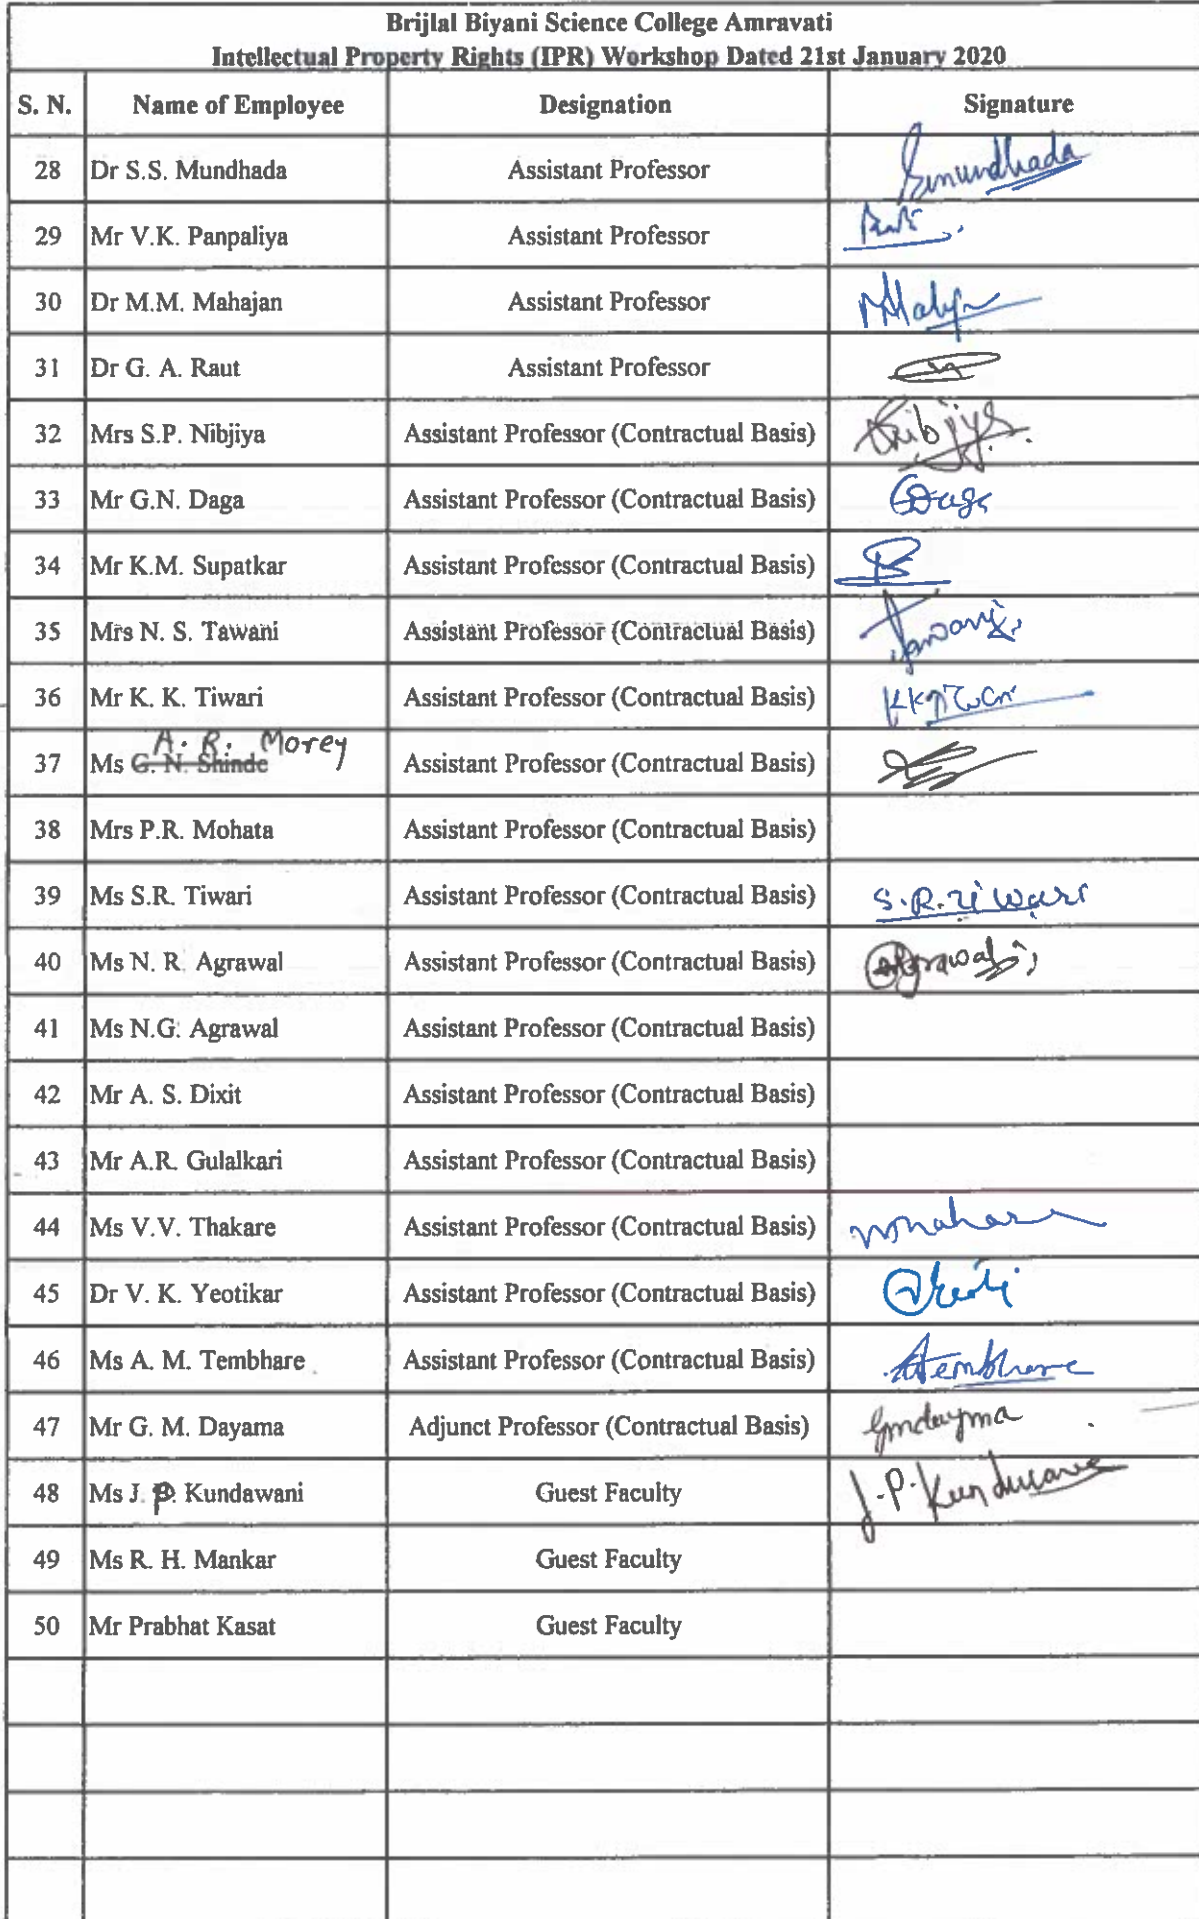 Brijlal Biyani Science College Amravati
Intellectual Property Rights (IPR) Workshop Dated 21st January 2020
S. N. Name of Employee Designation Signature
28 Dr S.S. Mundhada Assistant Professor Smundhada
29 Mr V.K. Panpaliya Assistant Professor
30 Dr M.M. Mahajan Assistant Professor
31 Dr G. A. Raut Assistant Professor
32 Mrs S.P. Nibjiya Assistant Professor (Contractual Basis)
33 Mr G.N. Daga Assistant Professor (Contractual Basis)
34 Mr K.M. Supatkar Assistant Professor (Contractual Basis)
35 Mrs N. S. Tawani Assistant Professor (Contractual Basis)
36 Mr K. K. Tiwari Assistant Professor (Contractual Basis)
A. R. Morey
37 Ms G. N. Shinde Assistant Professor (Contractual Basis)
38 Mrs P.R. Mohata Assistant Professor (Contractual Basis)
39 Ms S.R. Tiwari Assistant Professor (Contractual Basis) S.R.Tiwari
40 Ms N. R. Agrawal Assistant Professor (Contractual Basis) Agrawal
41 Ms N.G. Agrawal Assistant Professor (Contractual Basis)
42 Mr A. S. Dixit Assistant Professor (Contractual Basis)
43 Mr A.R. Gulalkari Assistant Professor (Contractual Basis)
44 Ms V.V. Thakare Assistant Professor (Contractual Basis)
45 Dr V. K. Yeotikar Assistant Professor (Contractual Basis)
46 Ms A. M. Tembhare Assistant Professor (Contractual Basis) ATembhare
47 Mr G. M. Dayama Adjunct Professor (Contractual Basis) Gmdayma
48 Ms J. P. Kundawani Guest Faculty J.P. Kundwani
49 Ms R. H. Mankar Guest Faculty
50 Mr Prabhat Kasat Guest Faculty